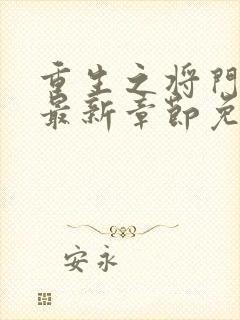 重生之将門
最新章節免
安永